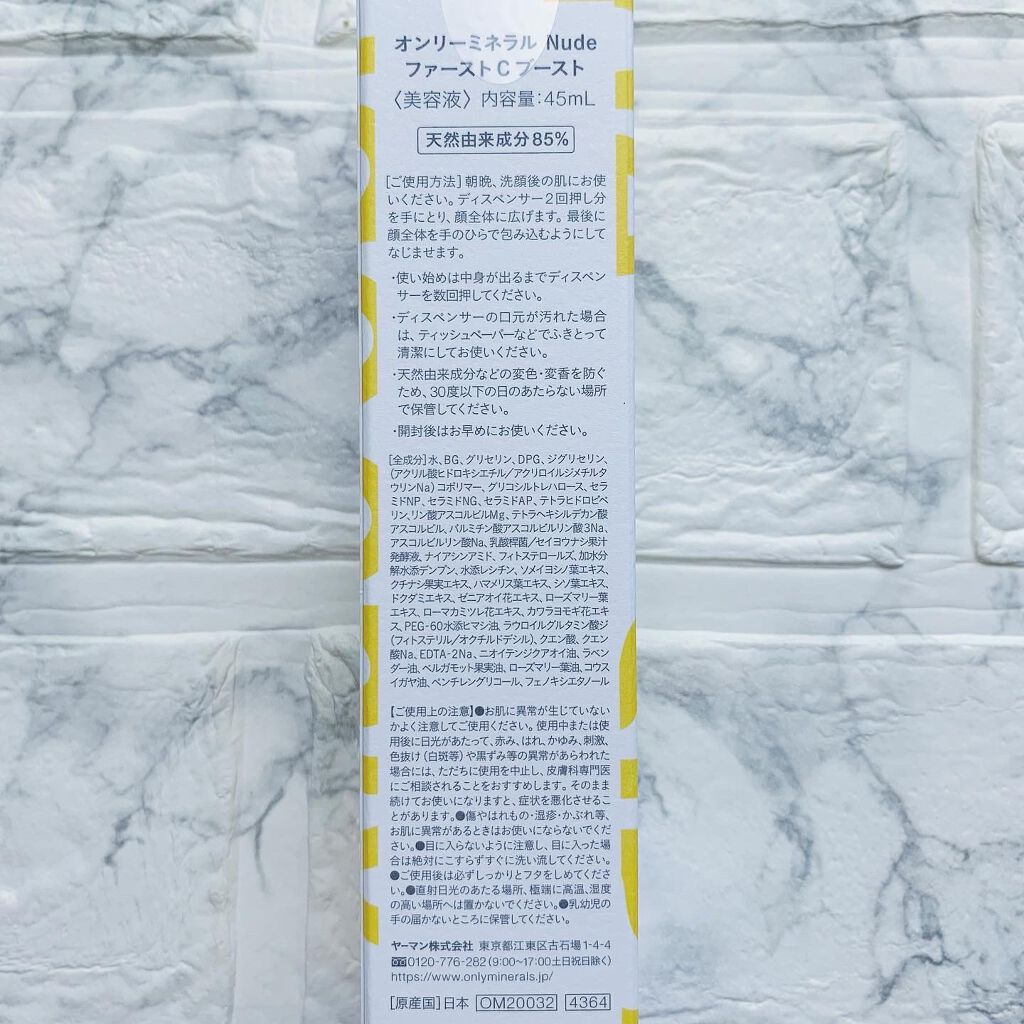 オンリーミネラル Nude
ファーストCブースト
〈美容液〉内容量:45mL
天然由来成分85%
[ご使用方法]朝晩、洗顔後の肌にお使
いください。ディスペンサー2回押し分
を手にとり、顔全体に広げます。最後に
顔全体を手のひらで包み込むようにして
なじませます。
・使い始めは中身が出るまでディスペン
サーを数回押してください。
・ディスペンサーの口元が汚れた場合
は、ティッシュペーパーなどでふきとって
清潔にしてお使いください。
・天然由来成分などの変色・変香を防ぐ
ため、30度以下の日のあたらない場所
で保管してください。
・開封後はお早めにお使いください。
[全成分]水、BG、グリセリン、DPG、ジグリセリン、
(アクリル酸ヒドロキシエチル/アクリロイルジメチルタ
ウリンNa)コポリマー、グリコシルトレハロース、セラ
ミドNP、セラミドNG、セラミドAP、テトラヒドロピペ
リン、リン酸アスコルビルMg、テトラヘキシルデカン酸
アスコルビル、パルミチン酸アスコルビルリン酸3Na、
アスコルビルリン酸Na、乳酸桿菌/セイヨウナシ果汁
発酵液、ナイアシンアミド、フィトステロールズ、加水分
解水添デンプン、水添レシチン、ソメイヨシノ葉エキス、
クチナシ果実エキス、ハマメリス葉エキス、シソ葉エキス、
ドクダミエキス、ゼニアオイ花エキス、ローズマリー葉
エキス、ローマカミツレ花エキス、カワラヨモギ花エキ
ス、PEG-60水添ヒマシ油、ラウロイルグルタミン酸ジ
(フィトステリル/オクチルドデシル)、クエン酸、クエン
酸Na、EDTA-2Na、ニオイテンジクアオイ油、ラベン
ダー油、ベルガモット果実油、ローズマリー葉油、コウス
イガヤ油、ペンチレングリコール、フェノキシエタノール
【ご使用上の注意】●お肌に異常が生じていない
かよく注意してご使用ください。使用中または使
用後に日光があたって、赤み、はれ、かゆみ、刺激、
色抜け(白斑等)や黒ずみ等の異常があらわれた
場合には、ただちに使用を中止し、皮膚科専門医
にご相談されることをおすすめします。そのまま
続けてお使いになりますと、症状を悪化させるこ
とがあります。●傷やはれもの・湿疹・かぶれ等、
お肌に異常があるときはお使いにならないでくだ
さい。●目に入らないように注意し、目に入った場
合は絶対にこすらずすぐに洗い流してください。
●ご使用後は必ずしっかりとフタをしめてくださ
い。●直射日光のあたる場所、極端に高温、湿度
の高い場所へは置かないでください。●乳幼児の
手の届かないところに保管してください。
ヤーマン株式会社 東京都江東区古石場1-4-4
0120-776-282(9:00~17:00土日祝日除く)
https://www.onlyminerals.jp/
[原産国]日本 OM20032 4364